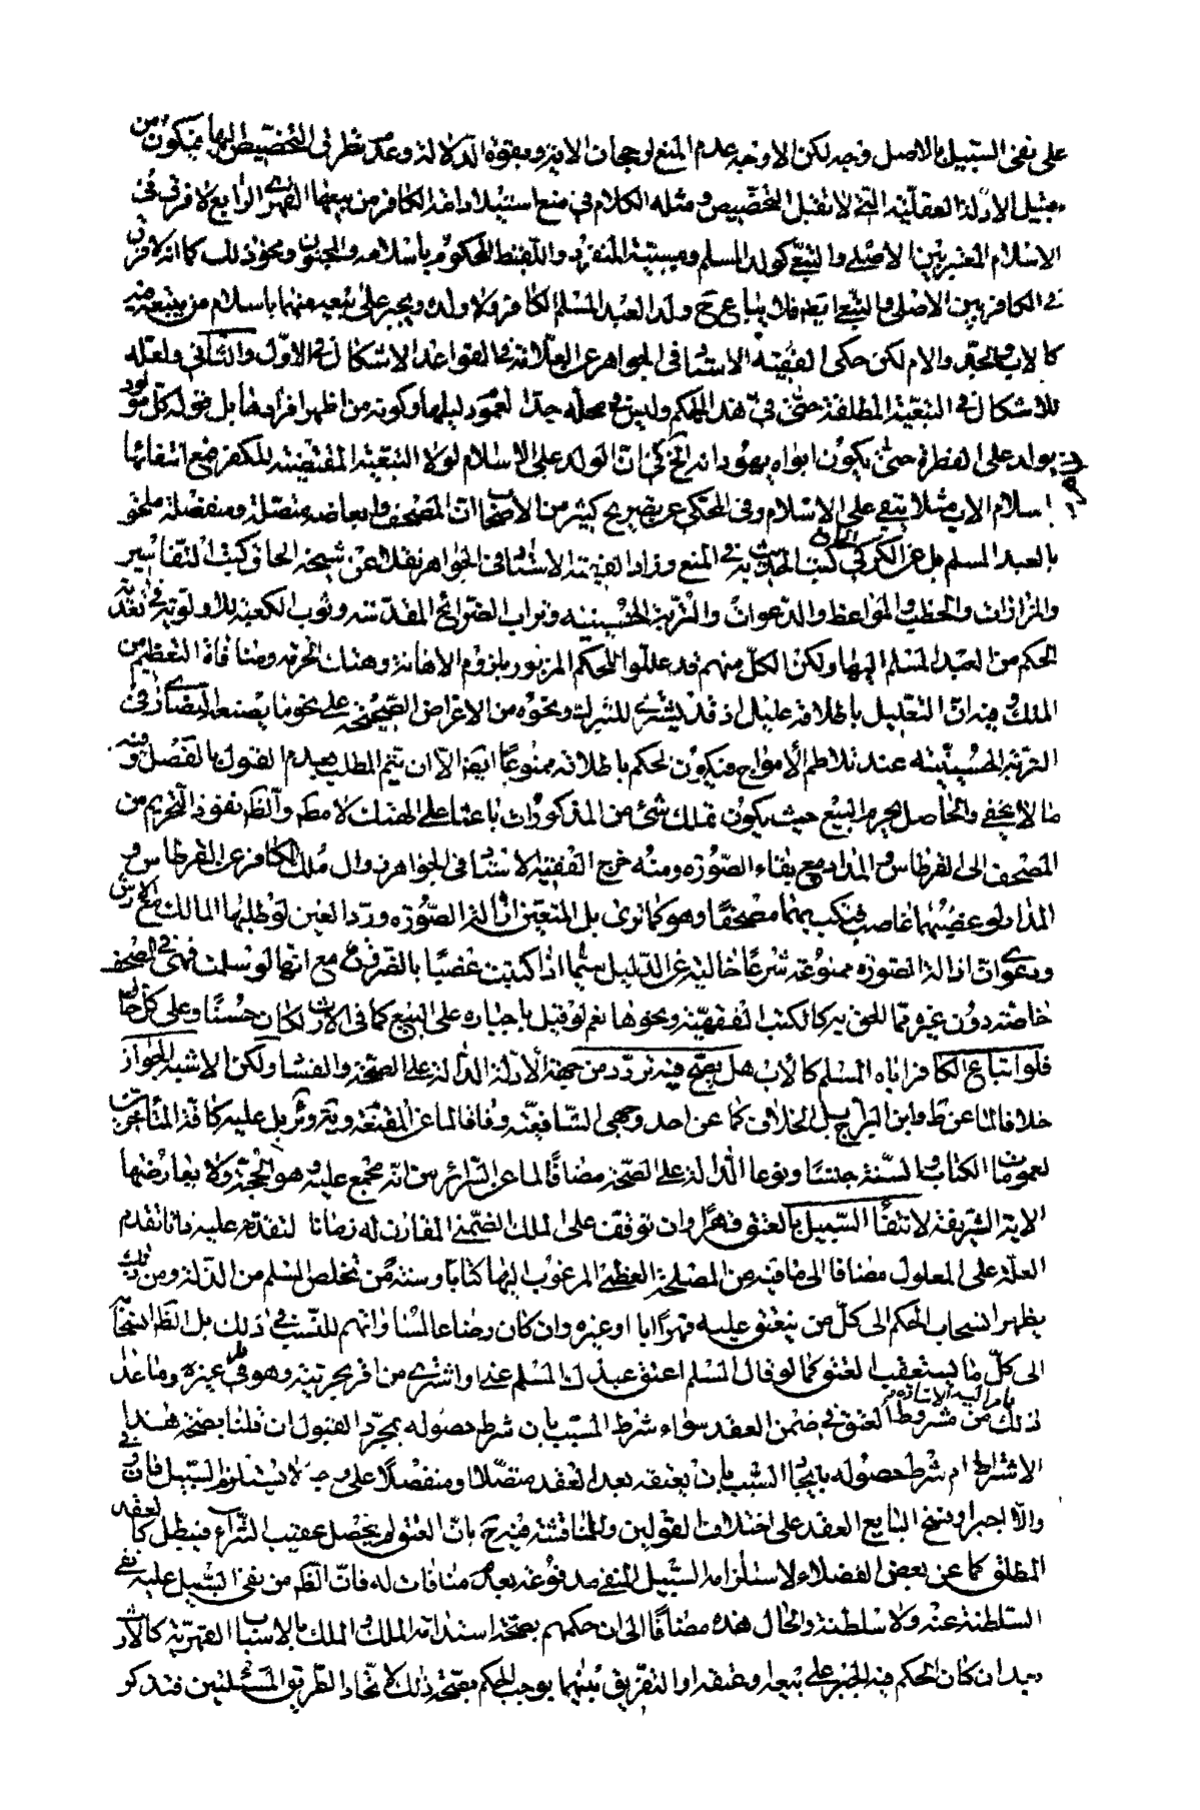 على نفى السّبيل بالاصل وجه لكن الاوجه عدم المنع لرجحان الاية وبقوة الدّلالة وعدم نظر فى التّخصيص اليها بل يكون من
قبيل الادلة العقليّة الّتى لا تقبل التّخصيص ومثله الكلام فى منع استيلاد امة الكافر من بيعها القهرى الرّابع لا فرق فى
الاسلام المعتبر بين الاصلى والتّبعى كولد المسلم ومسبيّة المنفرد واللّقيط المحكوم باسلامه والمجنون ونحو ذلك كما انه لا فرق
فى الكافر بين الاصلى والتّبعى ايضا فلا يباع ح ولد العبد المسلم الكافر ولا ولده ويجبر على بيعه منهما باسلام من يتبعه منه
كالاب والجد والام لكن حكى الفقيه الاستاد فى الجواهر عن العلّامة فى القواعد الاشكال فى الاوّل والثّانى ولعلّه
للاشكال فى التّبعيّة المطلقة حتّى فى هذا الحكم وليس فى محلّه جدّا لعموم دليلها وكونه من اظهر افرادها بل قوله كلّ مولود
يولد على الفطرة حتّى يكون ابواه يهودانه الخ فى انّ الولد على الاسلام لولا التّبعيّة المقتضية للكفر فمع انتفائها
باسلام الاب مثلا يبقى على الاسلام وفى المحكى عن تصريح كثير من الاصحاب انّ المصحف وابعاضه متصلة ومنفصلة ملحق
بالعبد المسلم بل عن الكركى كتب الحديث به فى المنع وزاد الفقيه الاستاد فى الجواهر نقلا عن شيخه الحاق كتب التّفاسير
والمزارات والخطب والمواعظ والدّعوات والتّربة الحسينيه وتراب الضّرائح المقدّسه وثوب الكعبة للاولوية فى تعدية
الحكم من العبد المسلم اليها ولكن الكلّ منهم قد علّلوا الحكم المزبور بلزوم الاهانة وهتك الحرمة ومنافاة التّعظيم من
الملك وفيه انّ التّعليل باطلاقه عليل اذ قد يشترى للتبرك ونحوه من الاغراض الصّحيحة على نحو ما يصنعه النّصارى فى
التربة الحسينيّه عند تلاطم الامواج فيكون الحكم باطلاقه ممنوعا ايضا الّا ان يتم المطلب بعدم القول بالفصل وفيه
ما لا يخفى والحاصل يحرم البيع حيث يكون تملك شئ من المذكورات باعثا على الهتك لا مطلقا والظّاهر نفوذ التّحريم من
المصحف الى القرطاس والمداد مع بقاء الصّورة ومنه خرج الفقيه الاستاد فى الجواهر زوال ملك الكافر عن القرطاس و
المداد لو غصبهما غاصب فيكتب بهما مصحفا وهو كما ترى بل المتعيّن ازالة الصّورة وردّ العين لو طلبها المالك مع الارش
ودعوى انّ ازالة الصّورة ممنوعة شرعا خالية عن الدّليل سيّما اذا كتبت غصبا بالقرض مع انّها لو سلمت فهى فى المصحف
خاصّة دون غيره ممّا الحق به كالكتب الفقهيّة ونحوها نعم لو قيل باجباره على البيع كما فى الارث لكان حسنا وعلى كل حال
فلو ابتاع الكافر اباه المسلم كالاب هل يصحّ فيه تردّد من جهة الادلة الدّالة على الصحّة والفساد ولكن الاشبه الجواز
خلافا لما عن ط وابن البراج بل الخلاف كما عن احد وجهى الشّافعيّة وفاقا لما عن المقنعة ويه وثريل عليه كافة المتأخرين
لعمومات الكتاب والسنّة جنسا ونوعا الدّالة على الصحّة مضافا لما عن السّرائر من انّه مجمع عليه وهو الحجّة ولا يعارضها
الاية الشريفة لانتفاء السّبيل بالعتق قهرا وان توقف على الملك الضّمنى المقارن له زمانا لتقدّمه عليه ذاتا تقدم
العلّة على المعلول مضافا الى ما فيه من المصلحة العظمى المرغوب اليها كتابا وسنة من تخلص المسلم من الذلّة ومن ذلك
يظهر انسحاب الحكم الى كلّ من ينعتق عليه قهرا ابا او غيره وان كان رضاعا لمساواتهم للنّسب فى ذلك بل الظاهر انسحابه
الى كلّ ما يستعقب العتق كما لو قال المسلم اعتق عبدك المسلم عنى او اشترى من اقرّ بحريته وهو فى غيره وما عدا
ذلك من مشروط العتق فى ضمن العقد سواء شرط المسبّب بان شرط حصوله بمجرّد القبول ان قلنا بصحّة هذا
الاشتراط ام شرط حصوله بايجاد السّبب بان يعتقه بعد العقد متصّلا او منفصلا على وجه لا يستلزم السّبيل فان وفى
والّا اجبر او فسخ البايع العقد على اختلاف القولين والمناقشة فيه ح بانّ العتق لم يحصل عقيب الشّراء فيبطل كالعقد
المطلق كما عن بعض الفضلاء لاستلزامه السّبيل المنفى مدفوعة بعدم منافاته له فانّ الظّاهر من نفى السّبيل عليه نفى
السّلطنة عنه ولا سلطنة والحال هذه مضافا الى ان حكمهم بصحّة استدامة الملك والملك بالاسباب القهريّة كالارث
بعد ان كان الحكم فيه الجبر على بيعه او عتقه او التفريق بينهما يوجب الحكم بصحّة ذلك لاتّحاد الطّريق المسئلتين فتذكر